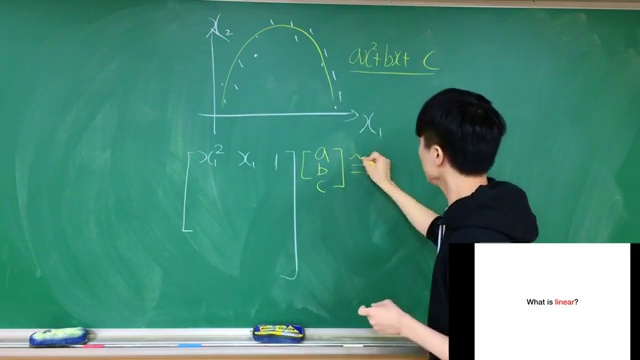 x₂
ax²+bx+ c
x₁
[x₁² x₁ 1] [a b c] ≈
What is linear?